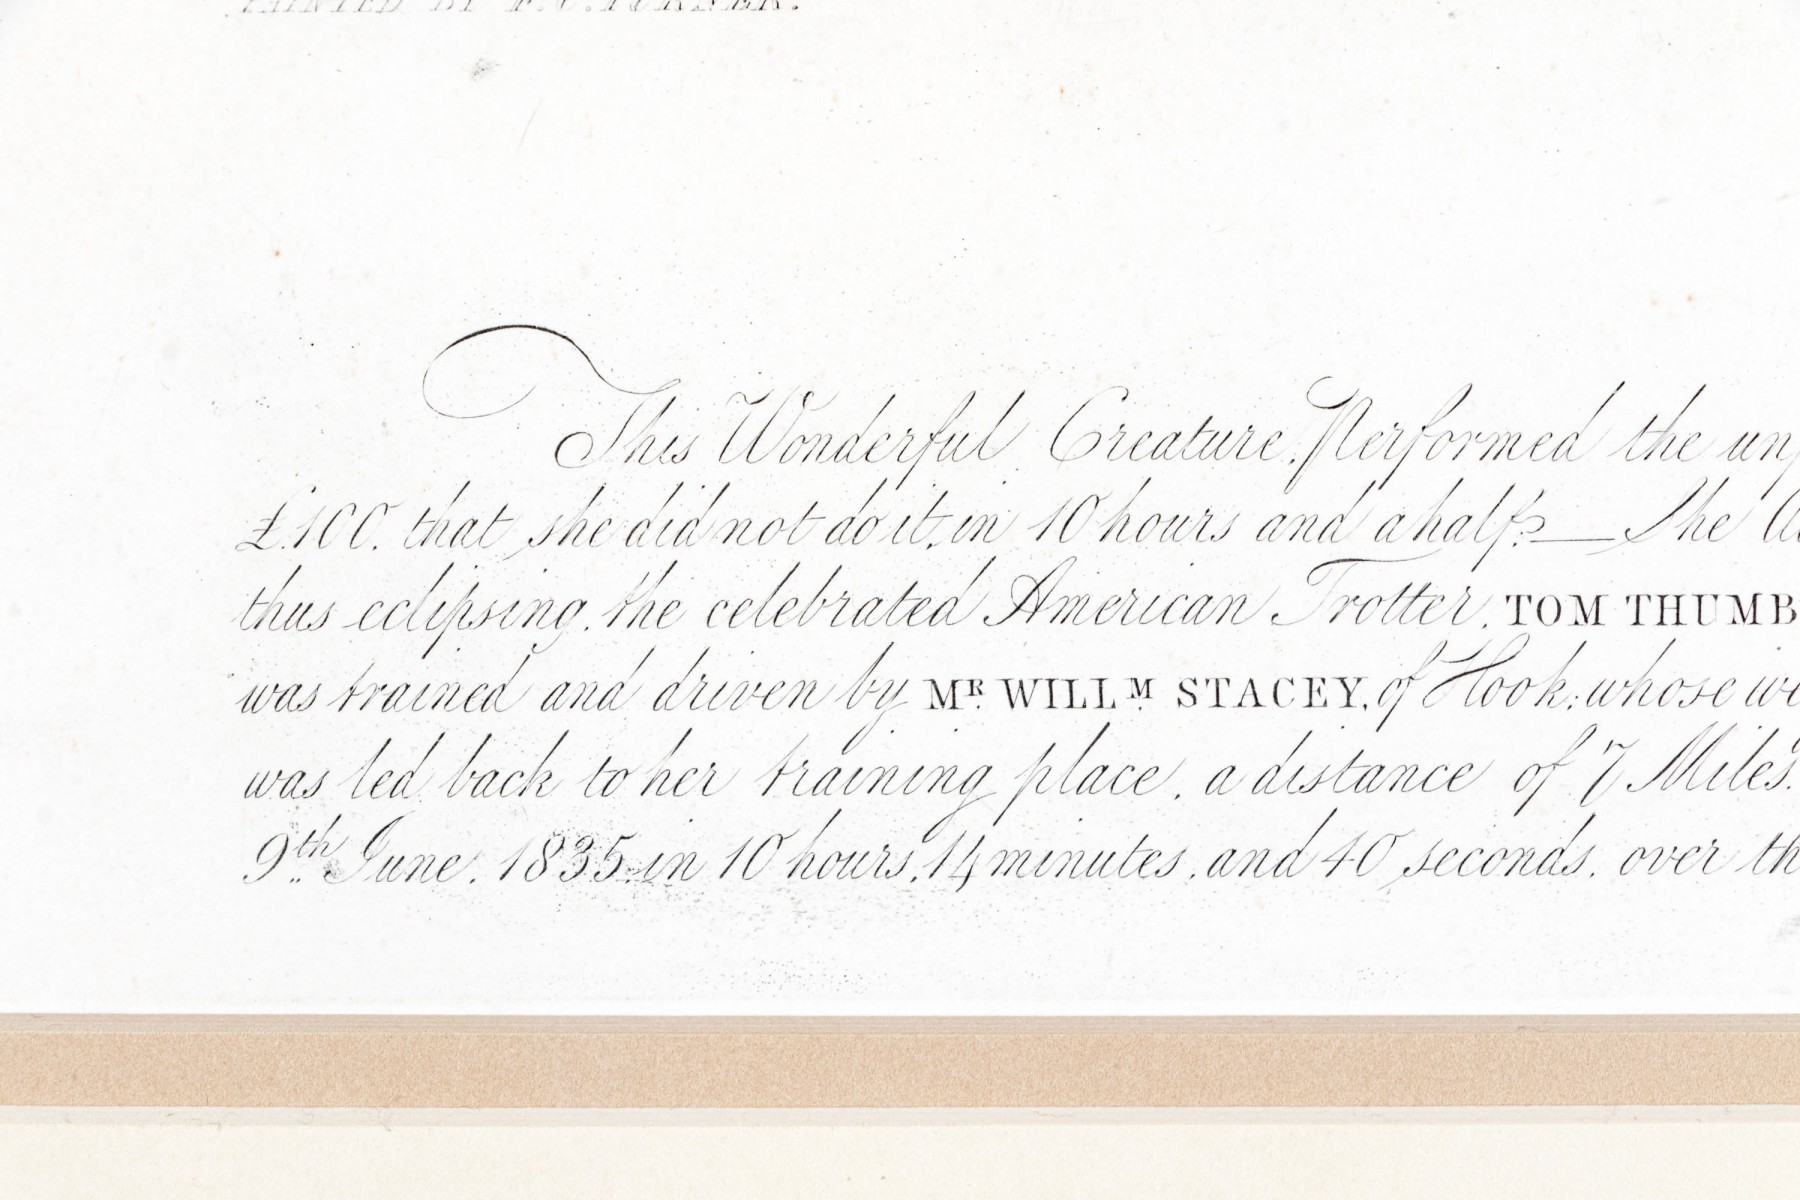 PAINTED BY F. C. TURNER.
This Wonderful Creature, Performed the
£100, that she did not do it, in 10 hours and a half:— She
thus eclipsing, the celebrated American Trotter, TOM THUMB
was trained and driven by Mʀ. WILLᴍ. STACEY, of Hook; whose
was led back to her training place, a distance of 7 Miles.
9th. June, 1835, in 10 hours, 14 minutes, and 40 seconds, over